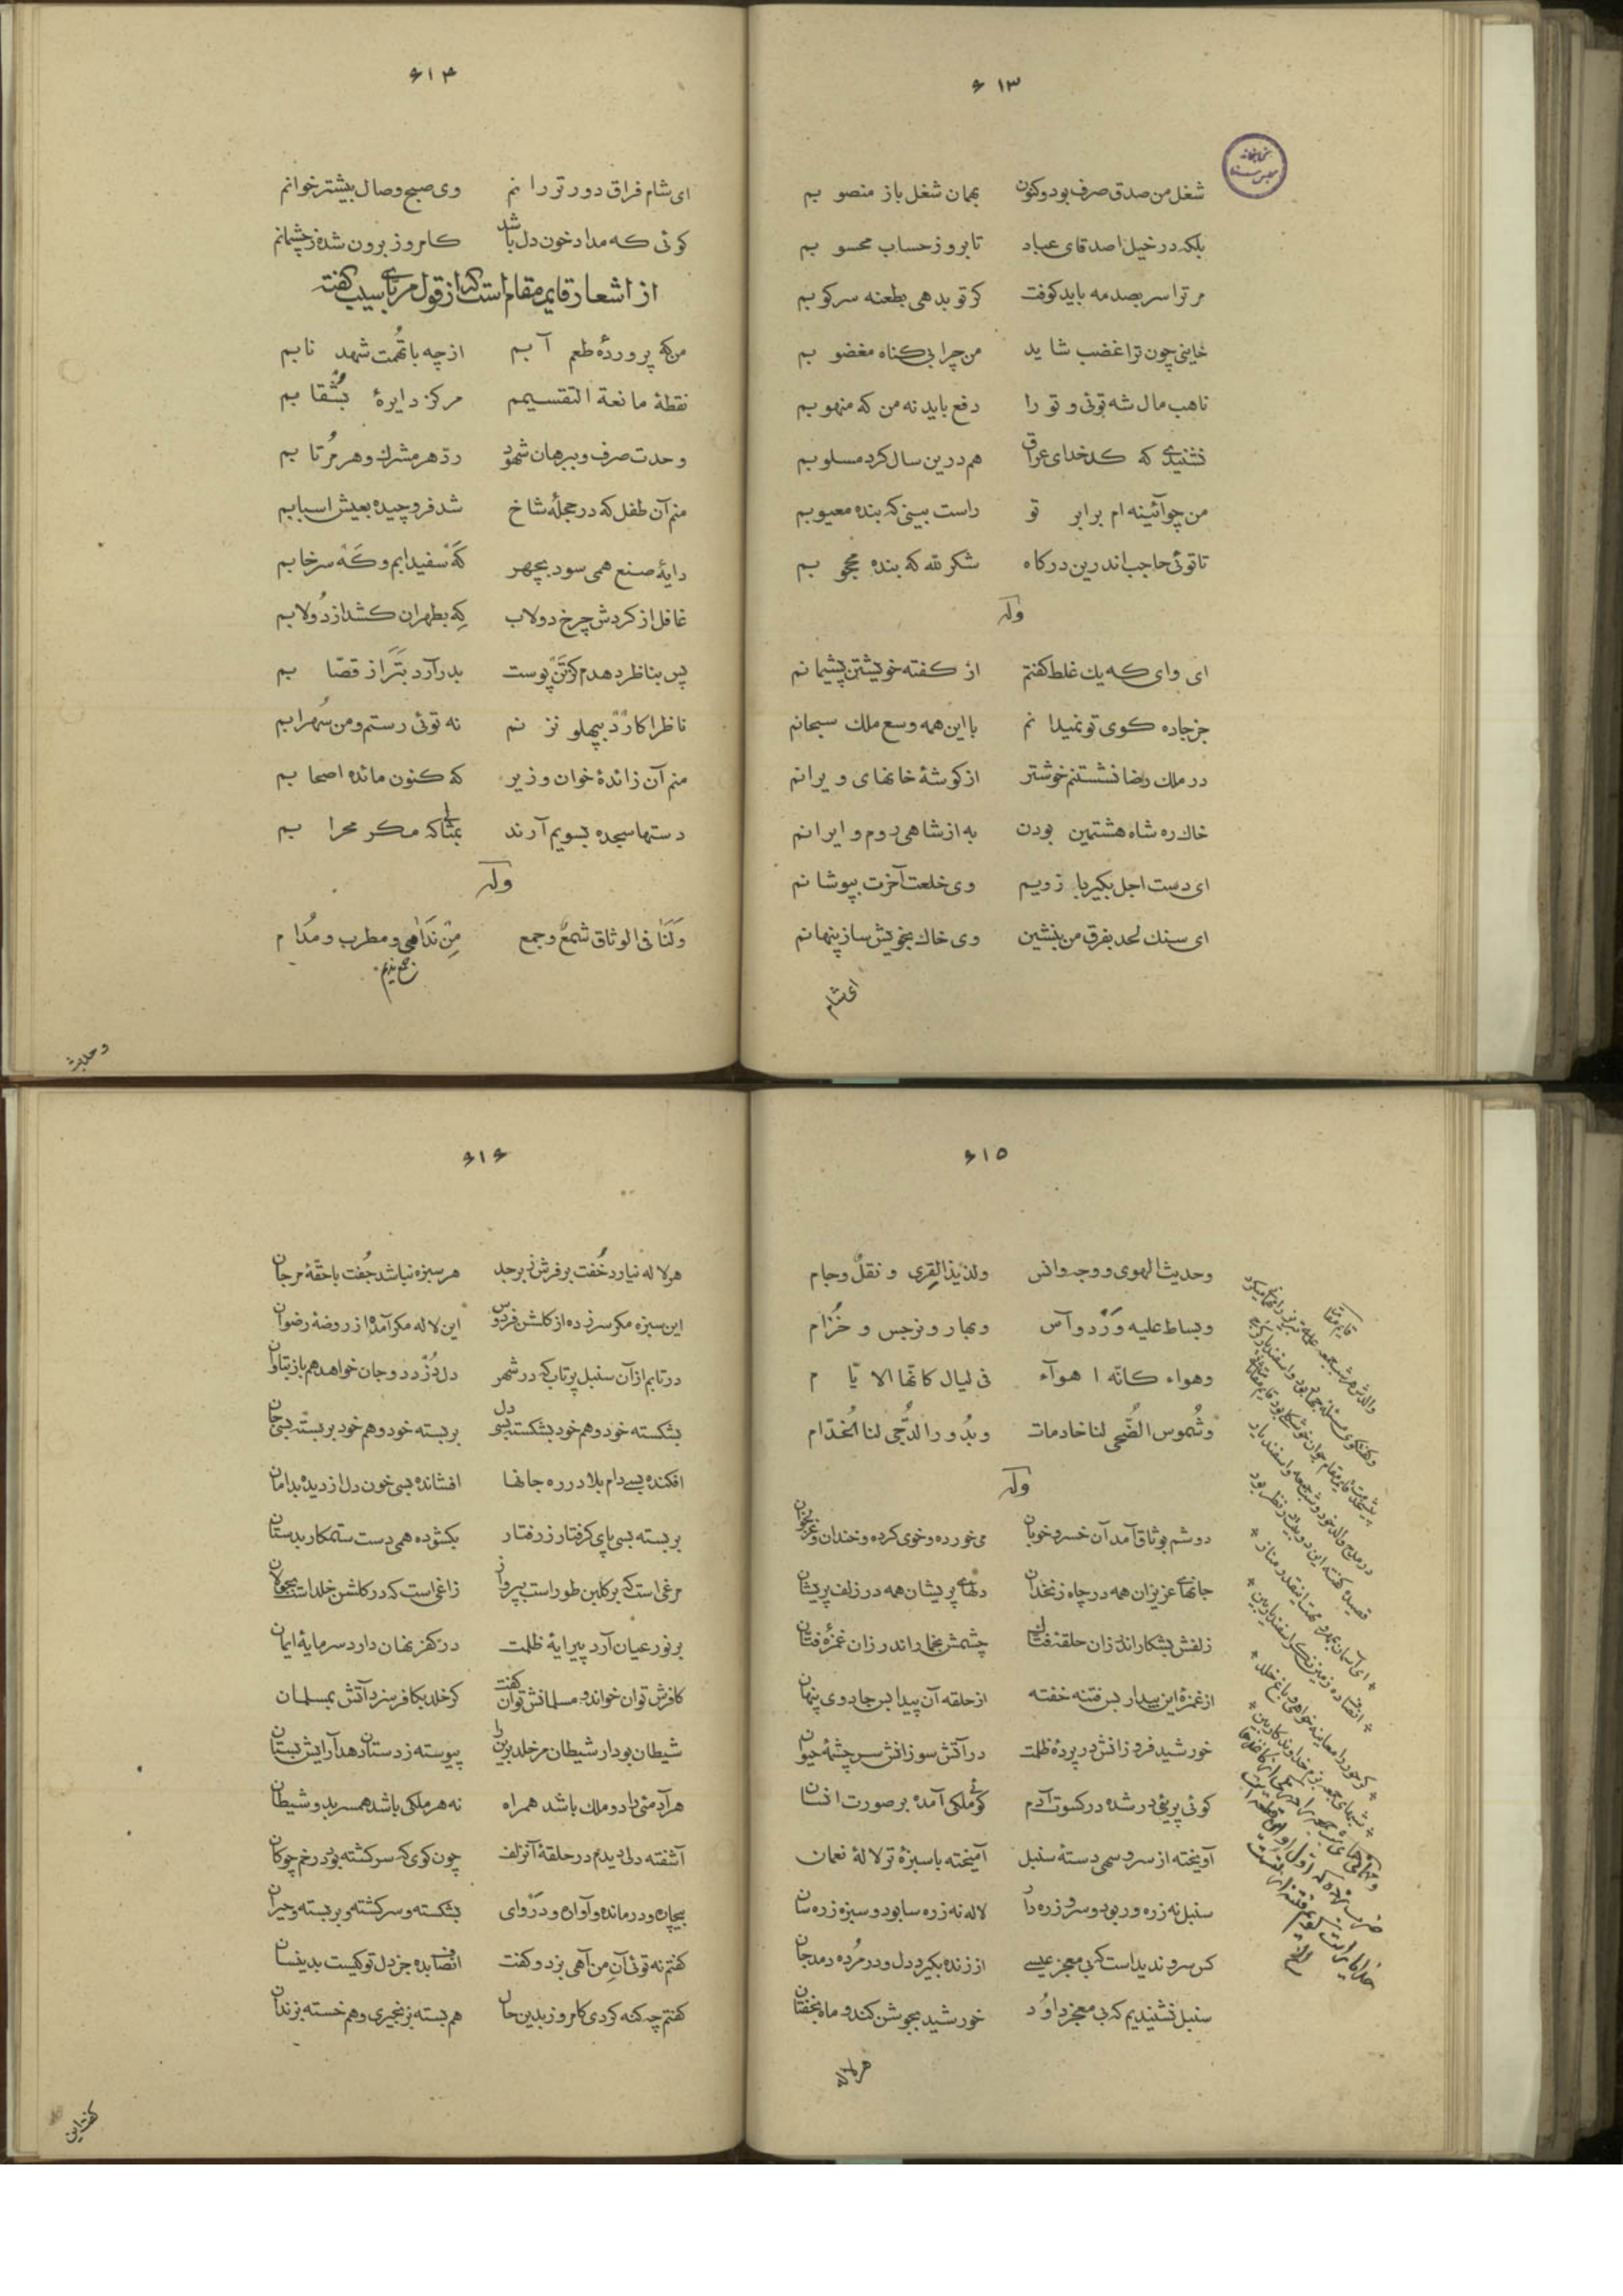 ۶۱۳
شغل من صدق صرف بود و کنون بهمان شغل باز منصوبم
بلکه در خیل اصدقای عباد تا بروز حساب محسوبم
مر ترا سر بصدمه باید کوفت کر تو بدهی بطعنه سرکوبم
خاینی چون ترا غضب شاید من چرا بی کناه مغضوبم
ناهب مال شه توئی و تو را دفع باید نه من که منهوبم
نشنیدی که کدخدای عراق هم درین سال کرد مسلوبم
من چو آئینه ام برابر تو راست بینی که بنده معیوبم
تا توئی حاجب اندرین درکاه شکر لله که بنده محجوبم
وله
ای وای که یك غلط کفتم از کفته خویشتن پشیمانم
جز جاده کوی تو نمیدانم با این همه وسع ملك سبحانم
در ملك رضا نشستنم خوشتر از کوشهٔ خانهای ویرانم
خاك ره شاه هشتمین بودن به از شاهی روم و ایرانم
ای دست اجل بکیر بازویم وی خلعت آخرت بپوشانم
ای سنك لحد بفرق من بنشین وی خاك بخویش ساز پنهانم
ای شام
۶۱۴
ای شام فراق دور تو رانم وی صبح وصال بیشتر خوانم
کوئی که مداد خون دل باشد کامروز برون شده ز چشمانم
از اشعار قایم مقام است که از قول مربای سیب کفته
من که پروردهٔ طعم آبم از چه با تهمت شهد نابم
نقطهٔ مانعة التقسیمم مرکز دایرهٔ بشقابم
وحدت صرف و ببرهان شهود رد هر مشرك و هر مرتابم
منم آن طفل که در حجلهٔ شاخ شد فرو چیده بعیش اسبابم
دایهٔ صنع همی سود بچهر که سفیدابم و که سرخابم
غافل از کردش چرخ دولاب که بطهران کشد از دولابم
پس بناظر دهدم کز تن پوست بدر آرد بتر از قصابم
ناظرا کارد بپهلو نزنم نه توئی رستم و من سهرابم
منم آن زائدهٔ خوان وزیر که کنون مائده اصحابم
دستها سجده بسویم آرند بمثابی که مکر محرابم
وله
وَلَنَا فی الوثاق شمعٌ وجمع مِنْ نَدَامی و مطرب و مُدام
جمع ندیم
وحدیث
۶۱۵
وحدیث الهوی ووجد وانس ولذیذ القِری و نقلٌ وجام
وبساط علیه وَرْد وآس وبهار و نرجس و خُزام
وهواء کانّه اهوآء فی لیال کانّها الایّام
وشُموس الضُّحی لنا خادمات وبُدور الدُّجی لنا الخُدّام
وله
دوشم بوثاق آمد آن خسرو خوبان می خورده و خوی کرده و خندان و غزلخوان
جانهای عزیزان همه در چاه زنخدان دلهای پریشان همه در زلف پریشان
زلفش بشکار اندر زان حلقهٔ فتان چشمش بخمار اندر زان غمزهٔ فتان
از غمزهٔ این بیدار بس فتنه خفته از حلقه آن پیدا بس جادوی پنهان
خورشید فروزانش در پردهٔ ظلمت در آتش سوزانش سرچشمهٔ حیوان
کوئی پریئی در شده در کسوت آدم کوئی ملکی آمده بر صورت انسان
آویخته از سرو سهی دستهٔ سنبل آمیخته با سبزهٔ تر لالهٔ نعمان
سنبل نه زره ور بود و سرو زره دار لاله نه زره سا بود و سبزه زره سان
کس سرو ندیداست که بی معجز عیسی از زنده بکیرد دل و در مُرده دمد جان
سنبل نشنیدیم که بی معجز داوُد خورشید بجوشن کند و ماه بخفتان
هر لاله
قایم مقام
۶۱۶
هر لاله نیارد خُفت بر فرش زبرجد هر سبزه نباشد جُفت با حقهٔ مرجان
این سبزه مکر سر زده از کلشن فردوس این لاله مکر آمده از روضهٔ رضوان
در تابم از آن سنبل پرتاب که در شهر دل دزدد و جان خواهد هم باز بتاوان
بشکسته خود و هم خود بشکسته بسی دل بر بسته خود و هم خود بر بسته بسی جان
افکنده بسی دام بلا در ره جانها افشانده بسی خون دل از دیده بدامان
بر بسته بسی پای کرفتار ز رفتار بکشوده همی دست ستمکار بدستان
مرغی است که بر کلبن طور است بپرواز زاغی است که در کلشن خلد است بجولان
بر نور عیان آرد پیرایهٔ ظلمت در کفر نهان دارد سرمایهٔ ایمان
کافرش توان خواند و مسلمانش توان کفت کر خلد بکافر سزد آتش بمسلمان
شیطان بود ار شیطان مر خلد برین را پیوسته ز دستان دهد آرایش بستان
هر آدمئی را دو ملك باشد همراه نه هر ملکی باشد همسر بدو شیطان
آشفته دلی دیدم در حلقهٔ آن زلف چون کوی که سرکشته بود در خم چوکان
بیچاره و درمانده و آواره و دروای بشکسته و سرکشته و بر بسته و حیران
کفتم نه توئی آنِ من آهی بزد و کفت انصاف بده جز دل تو کیست بدینسان
کفتم چه کنه کردی کامروز بدین حال هم بسته بزنجیری و هم خسته بزندان
کفت این